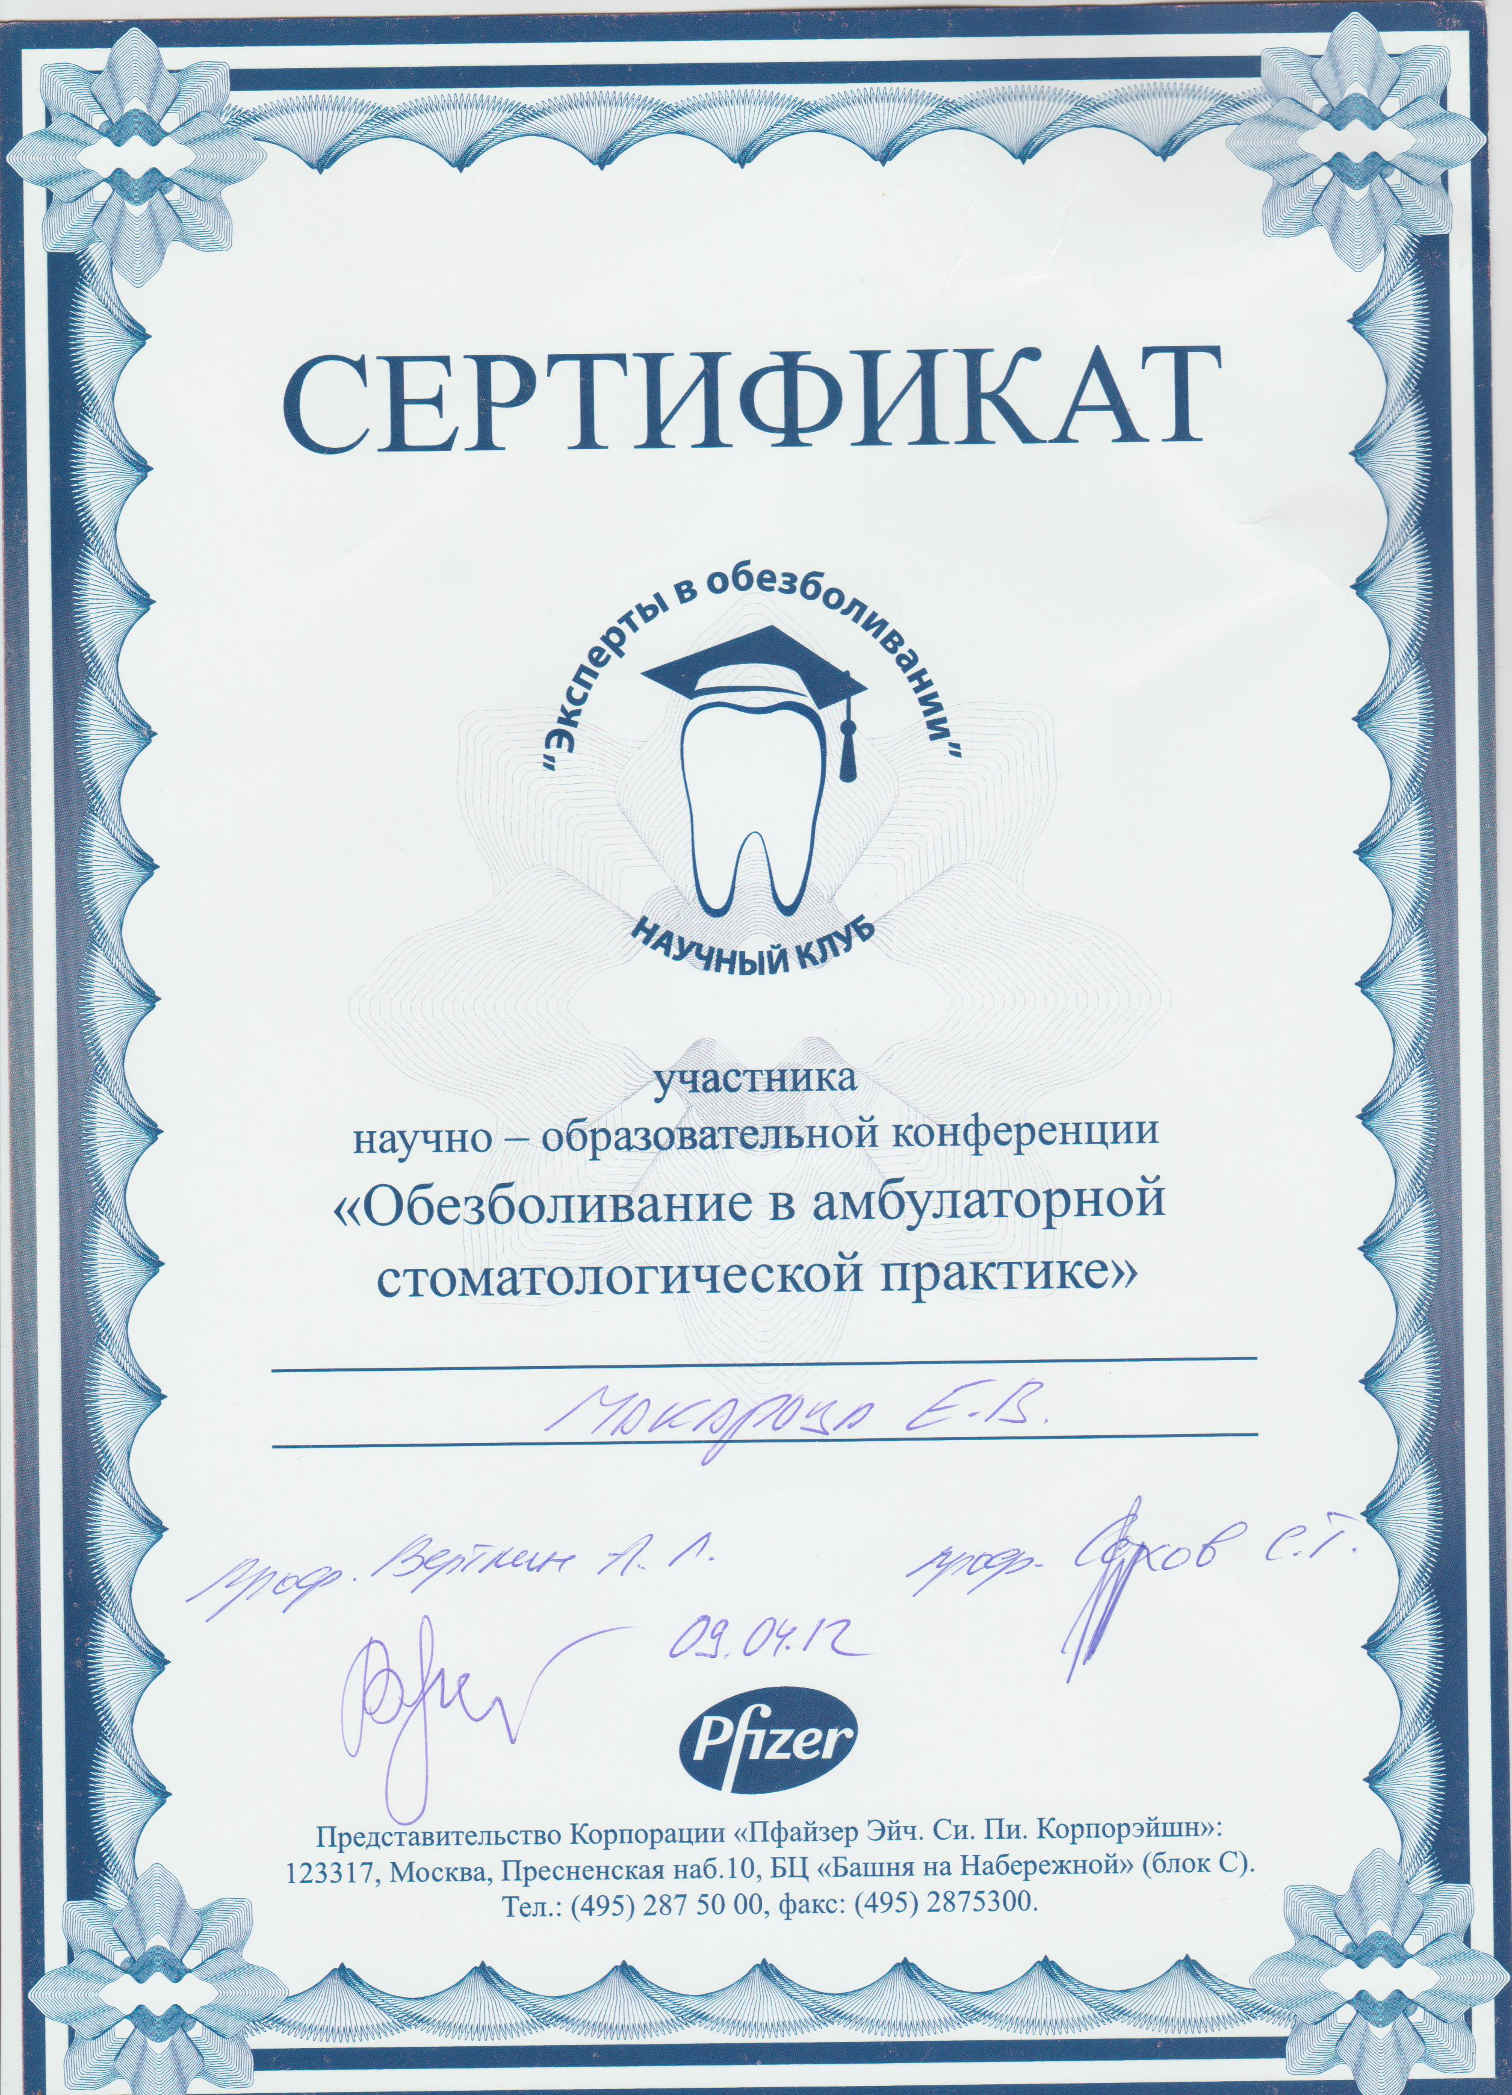 СЕРТИФИКАТ
"Эксперты в обезболивании"
НАУЧНЫЙ КЛУБ
участника
научно – образовательной конференции
«Обезболивание в амбулаторной
стоматологической практике»
Е.В.
проф. Верткин А. Л. проф. С.Т.
09.04.12
Pfizer
Представительство Корпорации «Пфайзер Эйч. Си. Пи. Корпорэйшн»:
123317, Москва, Пресненская наб.10, БЦ «Башня на Набережной» (блок С).
Тел.: (495) 287 50 00, факс: (495) 2875300.